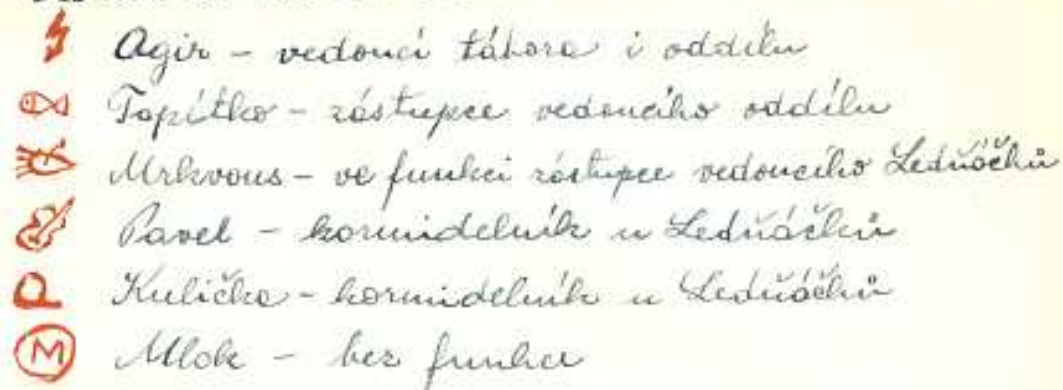 Agir - vedoucí tábora i oddílu
Topítko - zástupce vedoucího oddílu
Mrkvous - ve funkci zástupce vedoucího Ledňáčků
Pavel - kormidelník u Ledňáčků
P Kulička - kormidelník u Ledňáčků
M Mlok - bez funkce